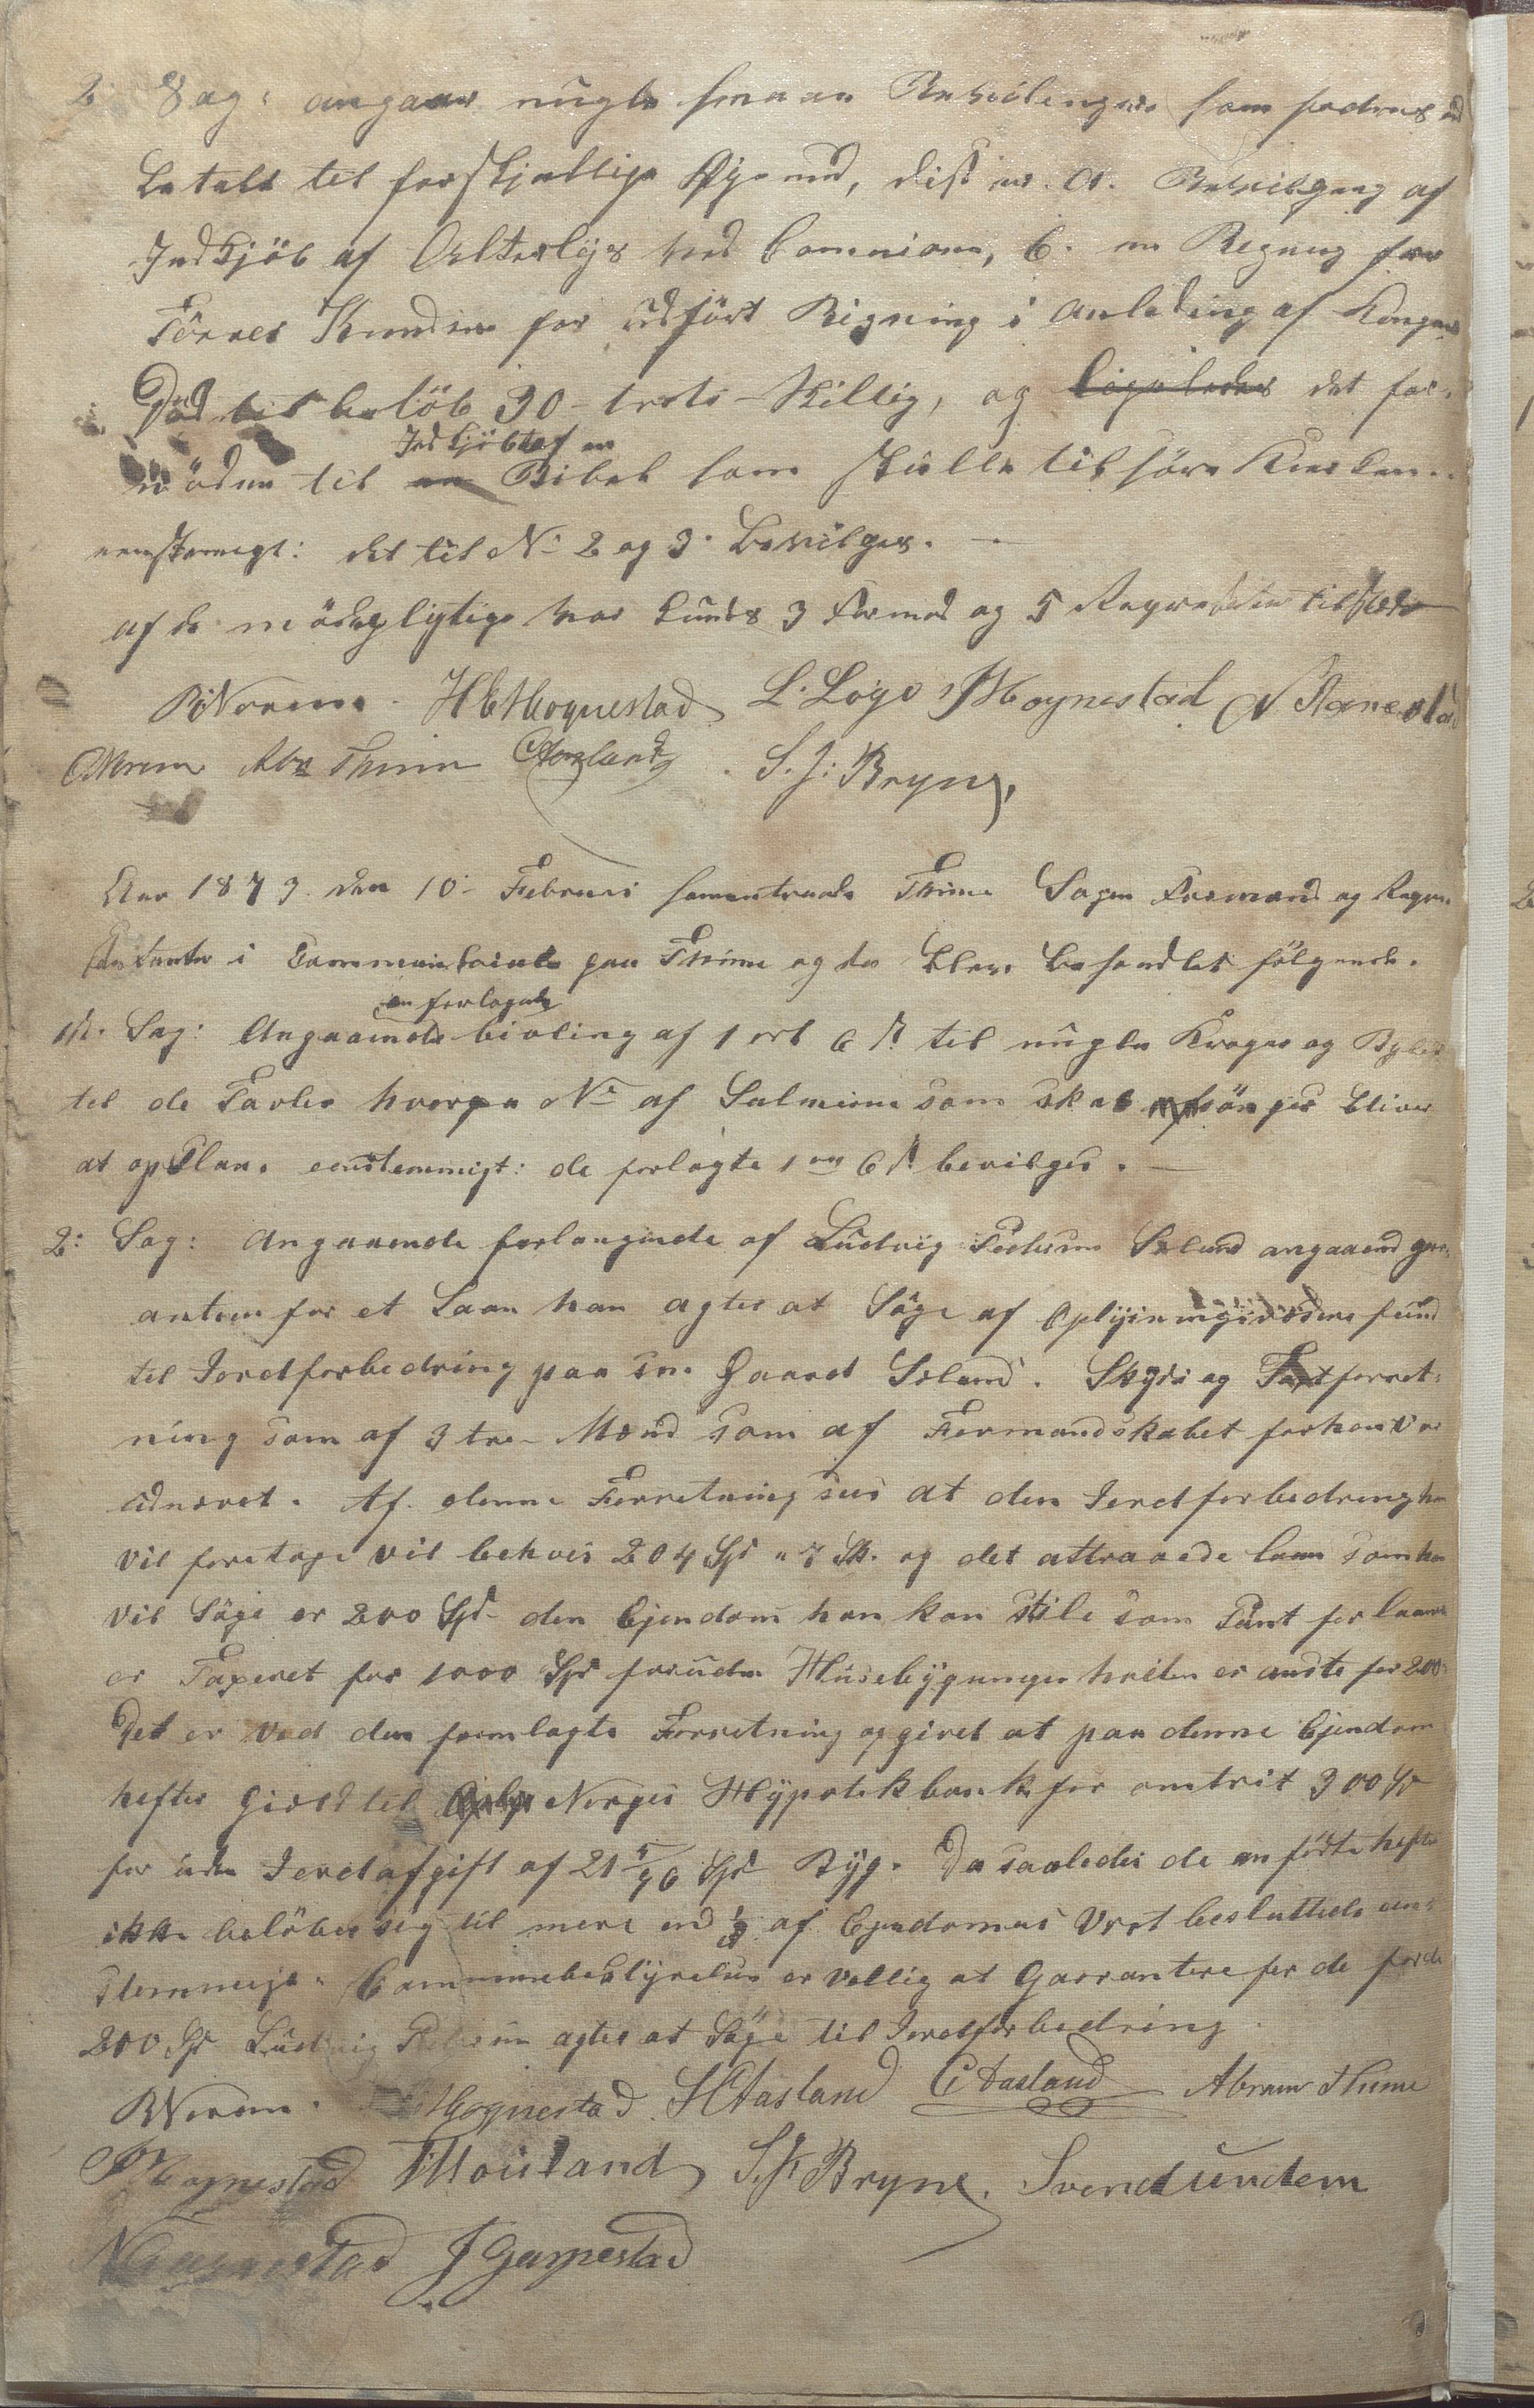 2 Sag: angaar nugle smaa Bevilenger som fodres
betalt til forskjellige Øyemed, dist er. A. Bevilgeng af
Indkjöb af Alterlys ved Comunion, 6. en Regneng fra
Törres Knudsen for udfört Rigning i anleding af Kongens
Död til belöb 30 - treti - Skillig, og ligeledes det for-
nödne til en Indkjöbt af en Bibel som skulle tilhöre Kirken
eenstemigt: det til No 2 og 3. Bevilges. -
af de mödepligtige var kunds 3 Formæd og 5 Repræsenter tilstede
R Norem. H E Hognestad L. Löge J Hognestad N Haanestad
O Norem Abr Thime Aarsland S. J: Bryne,
Aar 1873. den 10- Februari samentraade Thime Sogns Formænd og Repre-
sentanter i Kommuneloialet paa Thime og der blev behandlet fölgende.
1st. Sag: Angaaende en forlagede bivling af 1 ort 6 s til nugle Kroger og Byler
til de Tavler hvorpa No af Salmerne som skal afsönges bliver
at opslaa. eenstemmigt: de forlagte 1 ort 6 s bevilges. -
2: Sag: Angaaende forlangende af Ludvig Pedersen Sælund angaaend gar-
antien for et Laan han agter at Söge af Oplysningsvæsdens fund
til Jordforbedring paa sin Gaard Sælund. Skyds og Taxtforret-
ning som af 3 tre - Mænd som af Formandskabet forhand er
udnævnt. Af denne Forretning sees at den Jordforbedring han
vil foretage vil behøves 204 Spd " 7 Sk. og det attraaede laan som han
vil Söge er 200 Spd - den Ejendom han kan stile som Pant for laanet
er Taxeret for 1000 Spd foruden Husebygninger hvilen er ansete for 200
Det er ved den fremlagte Forretning opgivet at paa denne Ejendom
hefter Gield til Norges Hypotekbank for omtrit 300 Spd
for uden Jordafgift af 21 5/96 Spd Byg. Da saaledes de anförte hefter
ikke belöber sig til mere end 1/3 af Ejendomes Vært besluttede een-
stemmigt: Communebestyrelsen er villig at Garrantere for de
200 Spd Ludvig Pedersen agter at Söge til Jordforbedring.
R Norem. Hognestad. H Aasland C Aasland Abram Thime
J Hognestad T Mouland S. J Bryne. Svend Undem
N Garpestad J Garpestad